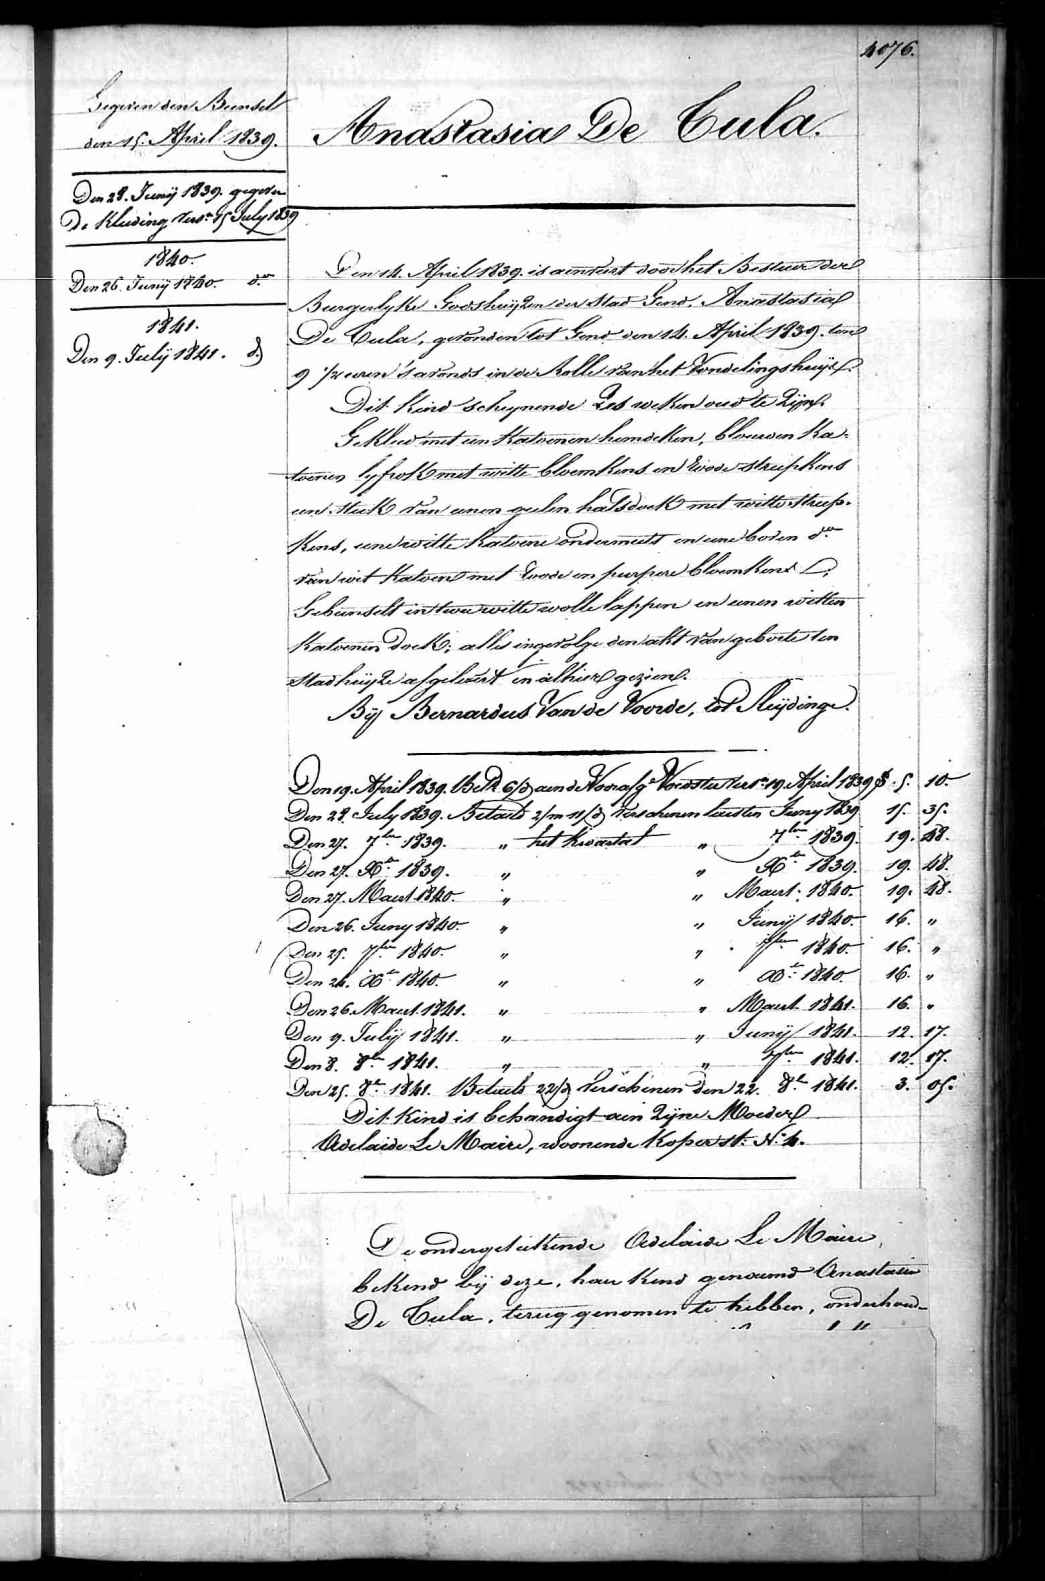 4076.
Gegeven den Bunsel
den 15. April 1839.
Den 28. Junij 1839. gegeven
De Kleeding vers.n 15 July 1839
1840.
Den 26. Junij 1840. do
1841.
Den 9. Julij 1841. do
Anastasia De Cula.
Den 14. April 1839. is aenveert door het Bestuer der
Burgerlyke Godshuijzen der Stad Gend, Anastasia
De Cula, gevonden tot Gend den 14. April 1839. ten
9 1/2 uren 's avonds in de Rolle van het Vondelingshuijs.
Dit Kind scheynende Zes weken oud te Zijn.
Gekleed met een Katoenen hemdeken, blauwen Ka-
toenen lyfrok met witte bloemkens en roode streepkens
een stuk van eenen geelen halsdoek met witte streep-
kens, eene witte Katoene ondermuts en eene boven do
van wit Katoen met roode en purpere bloemkens
Gebunselt in twee witte wolle lappen en eenen witten
Katoenen Doek; alles ingevolge den akt van geboorte ten
Stadhuijze afgeleert en alhier gezien.
Bij Bernardus Van de Voorde, tot Sleijdinge.
Den 19. April 1839. Bet. 6/d aen de Voorsz. Voedster vers.n 19. April 1839 f. 5. 10.
Den 28. July 1839. Betaelt 2/m 11/d verschenen lesten Junij 1839 15. 35.
Den 27. 7ber 1839. " het kwartael " 7ber 1839. 19. 48.
Den 27. Xbr 1839. " " Xbr 1839. 19. 48.
Den 27. Maert 1840. " " Maert 1840. 19. 48.
Den 26. Juny 1840. " " Junij 1840. 16. "
Den 25. 7ber 1840. " " 7ber 1840. 16. "
Den 24. Xbr 1840. " " Xbr 1840. 16. "
Den 26. Maert 1841. " " Maert 1841. 16. "
Den 9. Julij 1841. " " Junij 1841. 12. 17.
Den 8. 8br 1841. " " 7ber 1841. 12. 17.
Den 25. 8br 1841. Betaelt 22/d verschenen den 22. 8br 1841. 3. 05.
Dit Kind is behandigt aen Zijne Moeder
Adelaide Le Maire, woonende Koperst. N. 4.
De ondergeteekende Adelaide Le Maire,
bekend bij deze, haer Kend genaemd Anastasia
De Cula, terug genomen te hebben, onderhoud-